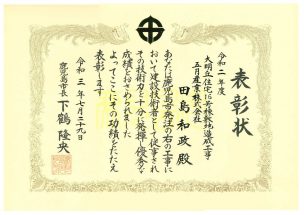 表彰状
令和二年度
大明丘住宅16号棟敷地造成工事
五月産業株式会社
田島和政殿
あなたは鹿児島市発注の右の工事に
おいて建設技術者として従事され
その技術力を十分に発揮し優秀な
成績をおさめられました
よってここにその功績をたたえ
表彰します
令和三年七月二十九日
鹿児島市長 下鶴隆央